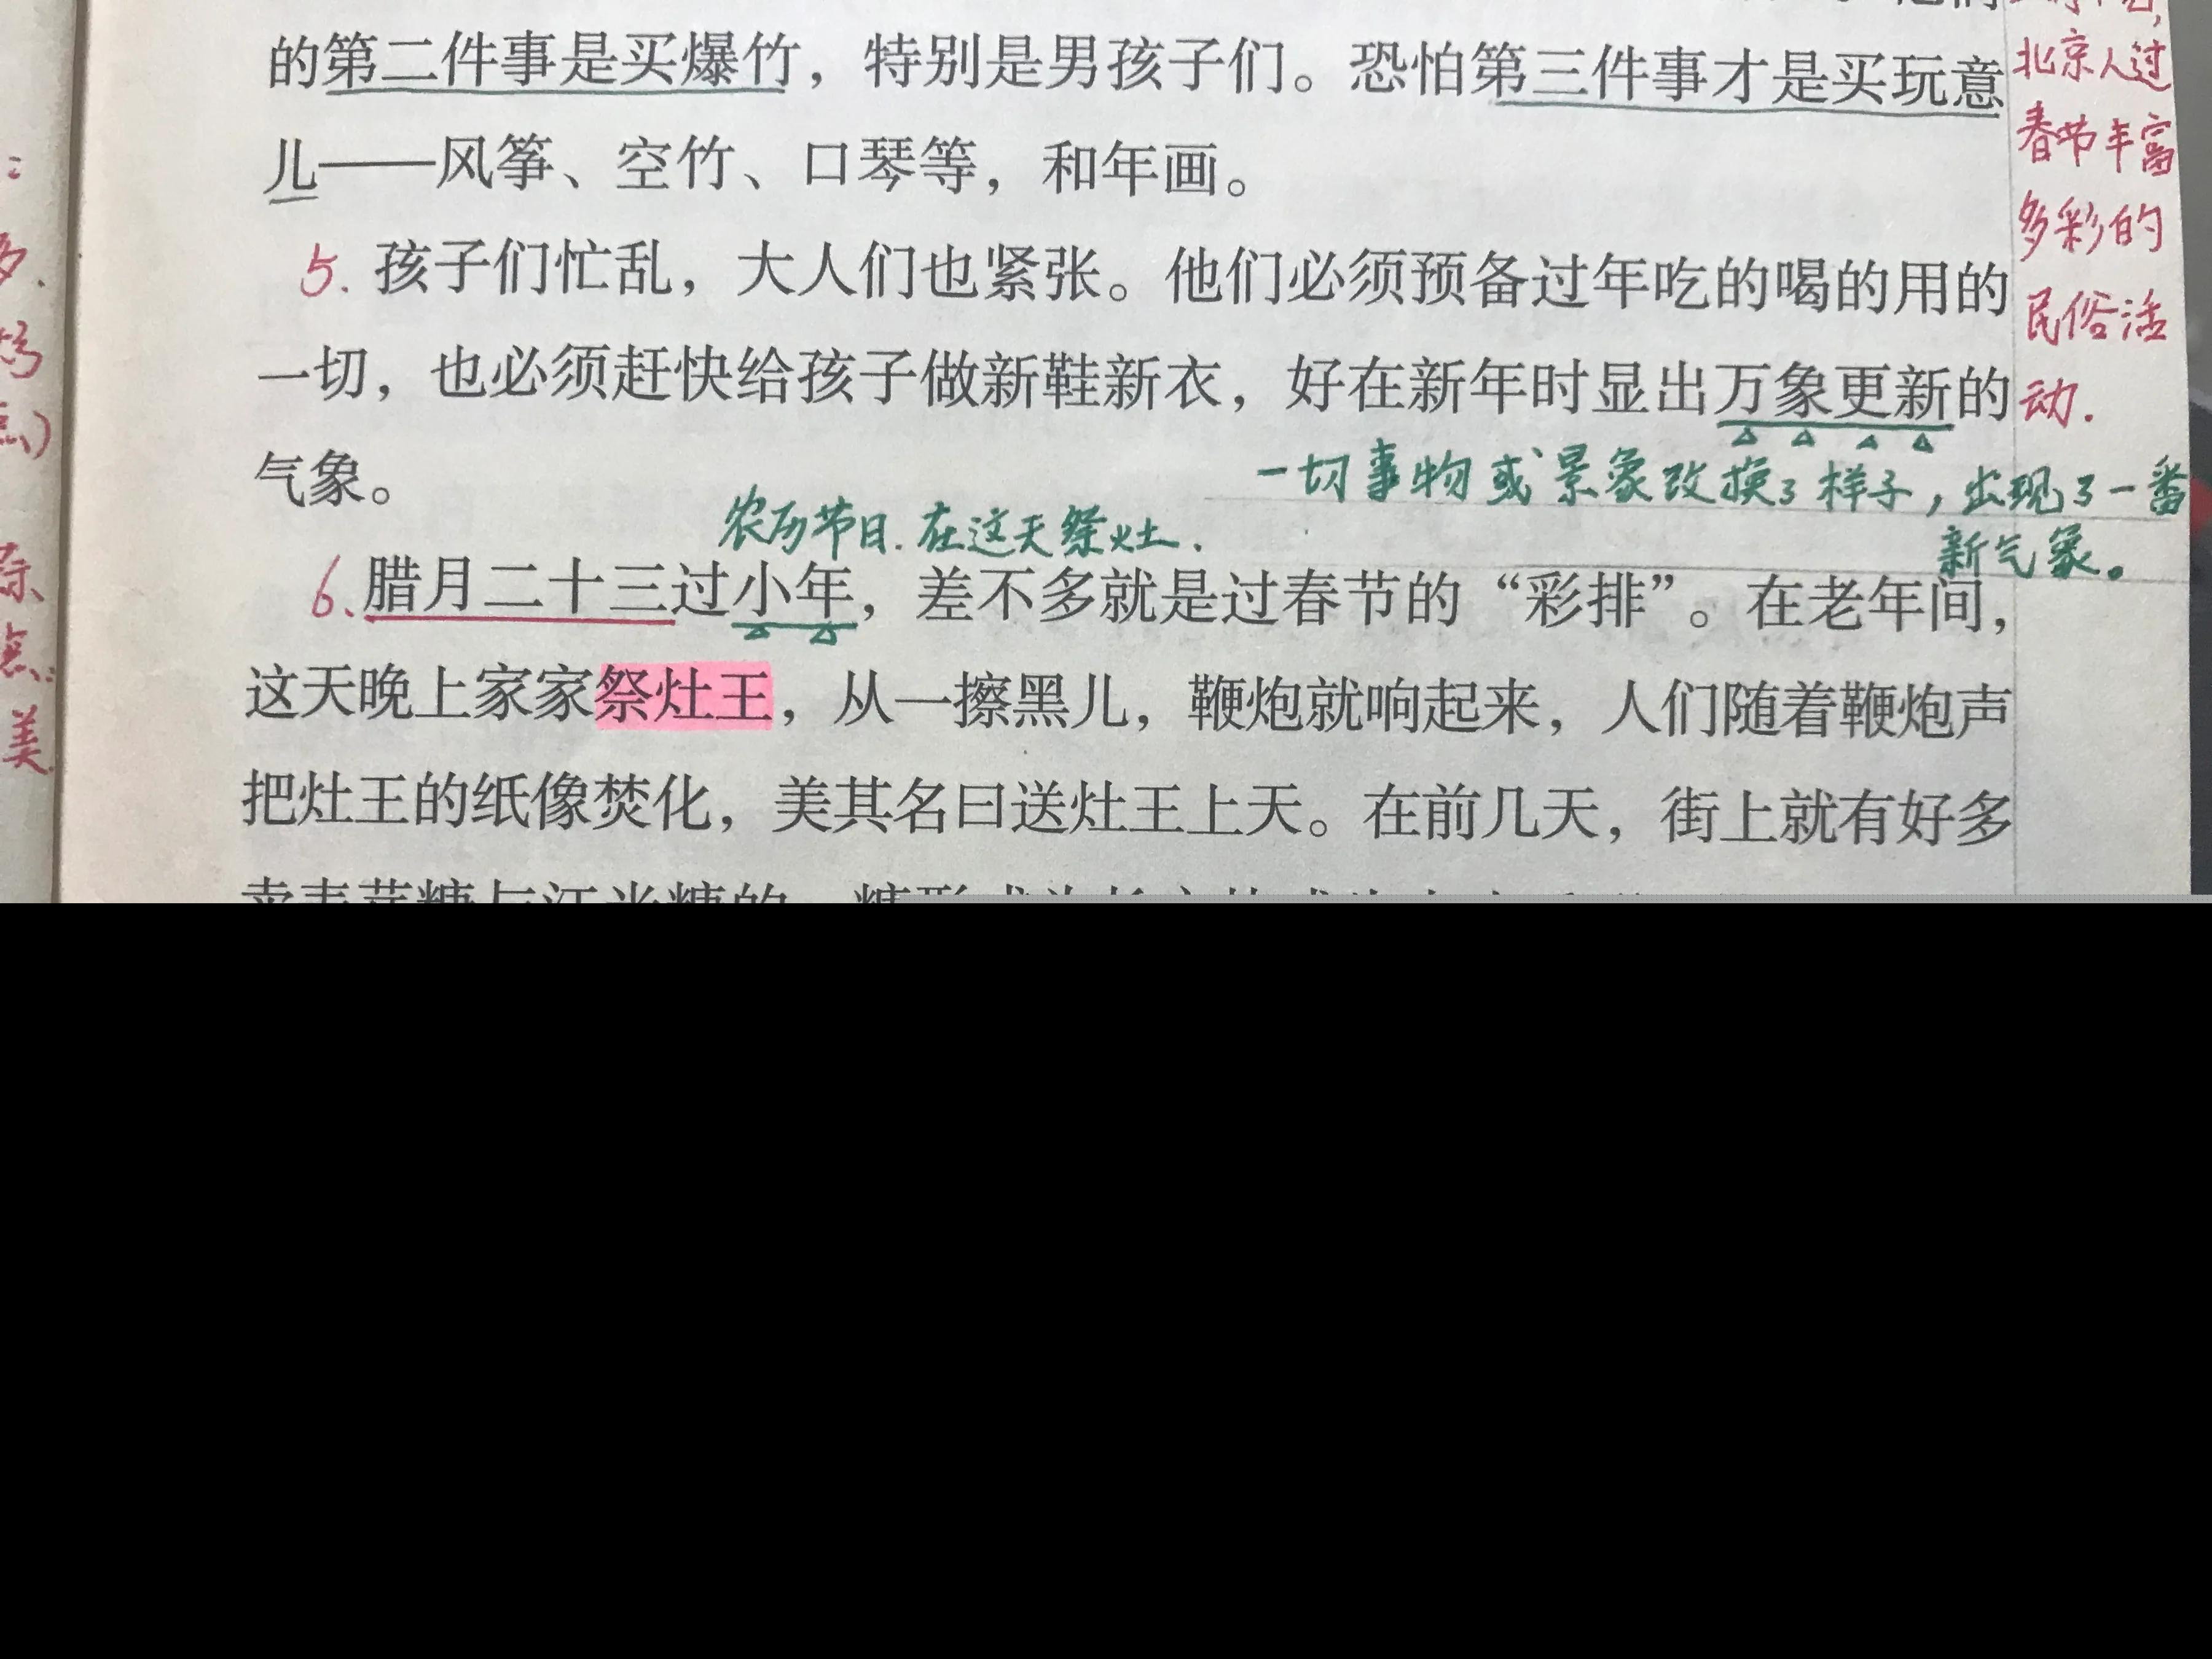 的第二件事是买爆竹，特别是男孩子们。恐怕第三件事才是买玩意
儿——风筝、空竹、口琴等，和年画。
5. 孩子们忙乱，大人们也紧张。他们必须预备过年吃的喝的用的
一切，也必须赶快给孩子做新鞋新衣，好在新年时显出万象更新的
气象。
一切事物或景象改换了样子，出现了一番
新气象。
农历节日.在这天祭灶.
6、腊月二十三过小年，差不多就是过春节的“彩排”。在老年间，
这天晚上家家祭灶王，从一擦黑儿，鞭炮就响起来，人们随着鞭炮声
把灶王的纸像焚化，美其名曰送灶王上天。在前几天，街上就有好多
北京人过
春节丰富
多彩的
民俗活
动.
多.
点)
点:
美